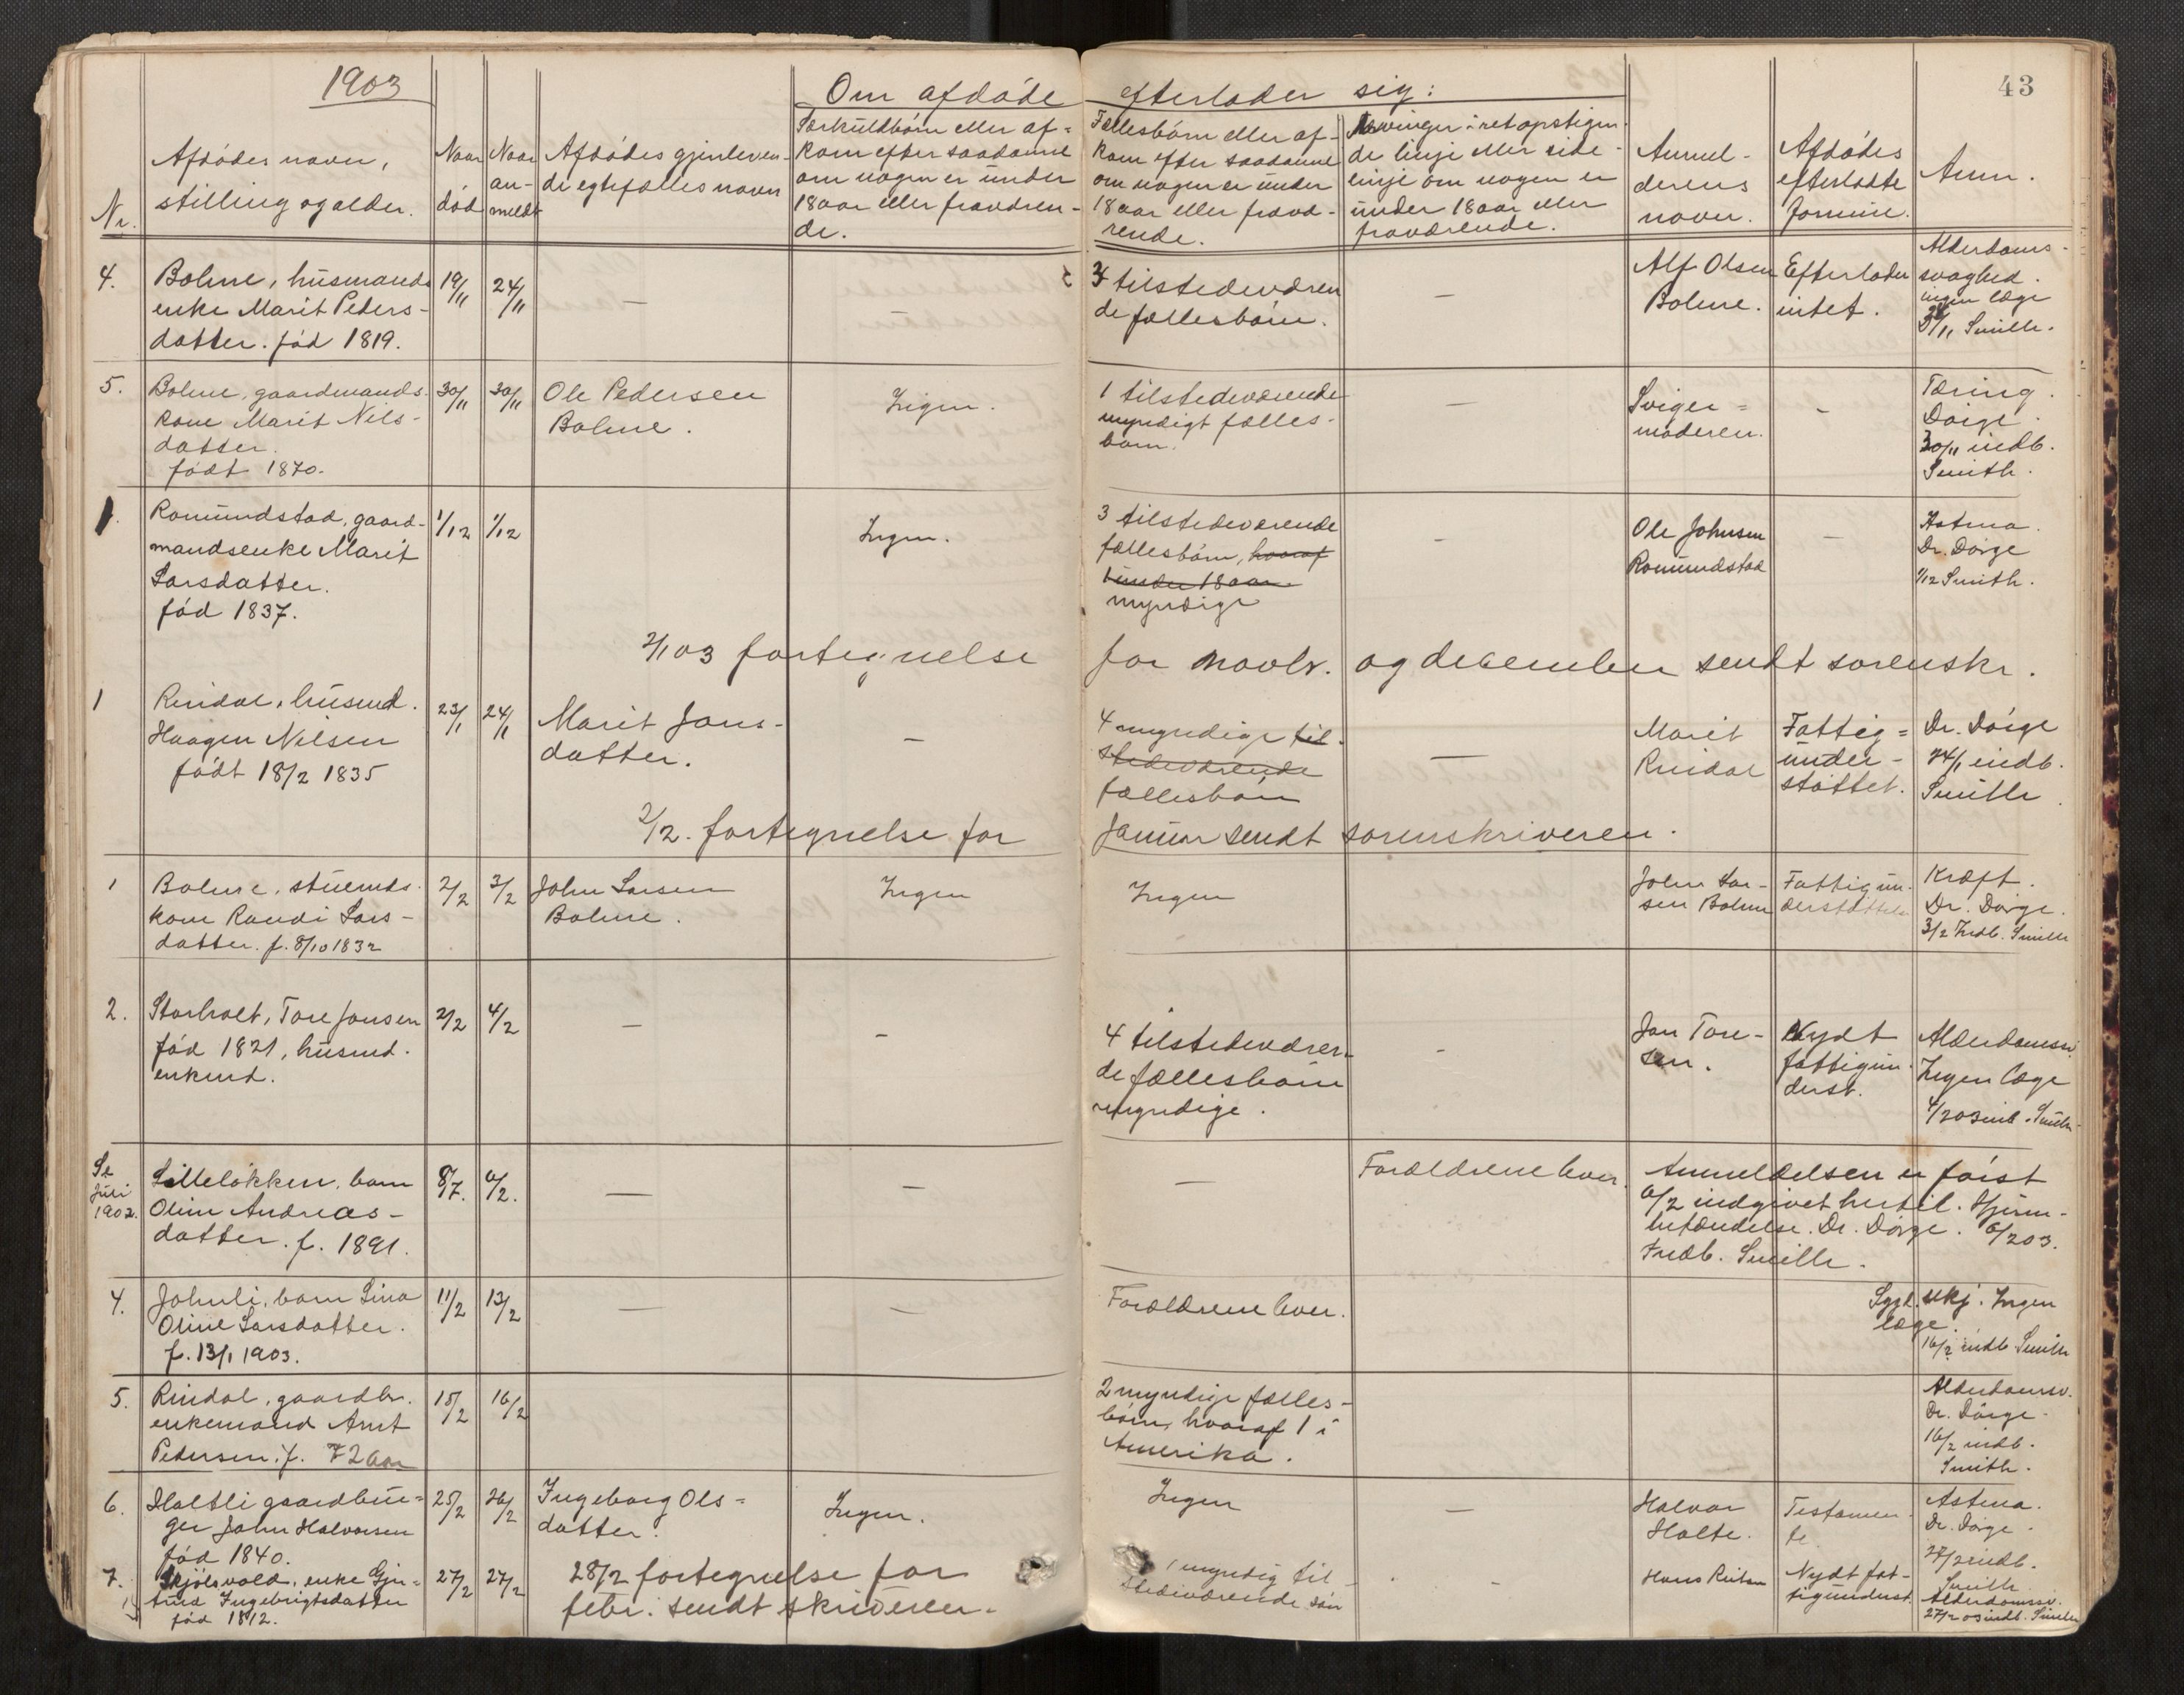 1903
43
Om afdøde efterlader sig:
Nr.
Afdødes navn,
stilling og alder.
Naar
død
Naar
an-
meldt
Afdødes gjenleven-
de egtefælles navn
Særkuldbørn eller af-
kom efter saadanne
om nogen er under
18 aar eller fraværen-
de.
Fællesbørn eller af-
kom efter saadanne
om nogen er under
18 aar eller fravæ-
rende.
Arvinger i ret opstigen-
de linje eller side-
linje om nogen er
under 18 aar eller
fraværende.
Anmel-
derens
navn.
Afdødes
efterladte
formue.
Anm.
4.
Bolme, husmands
enke Marit Peders-
datter. fød 1819.
19/11
24/11
—
3 tilstedeværen
de fællesbørn.
—
Alf Olsen
Bolme.
Efterlader
intet.
Alderdoms-
svaghed.
ingen læge
/11 Smith.
5.
Bolme, gaardmands
kone Marit Nils-
datter.
født 1870.
30/11
30/11
Ole Pedersen
Bolme.
Ingen.
1 tilstedeværende
myndigt fælles-
barn.
—
Sviger-
moderen.
-
Tæring.
Dørge
30/11 indb.
Smith.
1.
Romundstad, gaard-
mandsenke Marit
Larsdatter.
fød 1837.
1/12
1/12
Ingen.
3 tilstedeværende
fællesbørn, hvoraf
1 under 18 aar
myndige
-
Ole Johnsen
Romundstad
—
Astma.
Dr. Dørge
1/12 Smith.
2/1 03 fortegnelse for novbr. og december sendt sorenskr.
1
Rindal, husmd.
Haagen Nilsen
født 18/2 1835
23/1
24/1
Marit Jons-
datter.
—
4 myndige til-
stedeværende
fællesbørn
—
Marit
Rindal
Fattig=
under-
støttet.
Dr. Dørge
24/1 indb.
Smith
2/2. fortegnelse for januar sendt sorenskriveren.
1
Bolme, stuemds.
kone Randi Lars-
datter. f. 8/10 1832
2/2
3/2
John Larsen
Bolme.
Ingen
Ingen
John Lar-
sen Bolme
Fattigun-
derstøttelse
Kræft.
Dr. Dørge.
3/2 Indb. Smith
2.
Storholt, Tore Jonsen
fød 1821, husmd.
enkmd.
2/2
4/2
—
-
4 tilstedeværen-
de fællesbørn
myndige.
-
Jon Tore-
sen.
Nydt
fattigun-
derst.
Alderdomssv.
Ingen læge
4/2 03 inb. Smith
Se
Juli
1902.
Lilleløkken, barn
Oline Andreas-
datter. f. 1891.
8/7.
6/2.
—
—
—
Forældrene lever.
Anmeldelsen er først
6/2 indgivet hertil. Hjerne-
betændelse. Dr. Dørge. 6/2 03.
Indb. Smith.
4.
Johnli, barn Lina
Oline Larsdatter.
f. 13/1 1903.
11/2
13/2
—
—
Forældrene lever.
Sygd. ukj. Ingen
læge
16/2 indb Smith
5.
Rindal, gaardbr.
enkemand Arnt
Pedersen. f. 72 aar
15/2
16/2
2 myndige fælles-
børn, hvoraf 1 i
Amerika.
Alderdomsv.
Dr. Dørge.
16/2 indb.
Smith.
6.
Holtli gaardbru-
ger John Halvorsen
fød 1840.
25/2
26/2
Ingeborg Ols=
datter.
Ingen.
Ingen
—
Halvor
Holte.
Testamen-
te.
Astma.
Dr. Dørge.
27/2 indb.
Smith
7.
Skjølsvold, enke Gjer-
trud Ingebrigtsdatter
fød 1812.
27/2
27/2
28/2 fortegnelse for
febr. sendt skriveren.
1 myndig til-
stedeværende søn
-
Hans
Nydt fat-
tigunderst.
Alderdomssv.
27/2 03 indb. Smith